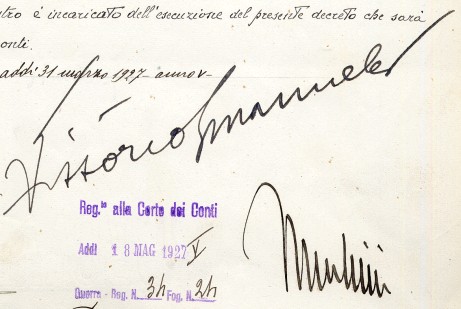 tro è incaricato dell'esecuzione del presente decreto che sarà
onti.
addì 31 marzo 1927 - anno V -
Vittorio Emanuele
Reg.to alla Corte dei Conti
Addì 18 MAG 1927 V
Mussolini
Guerra - Reg. N. 34 Fog. N. 24